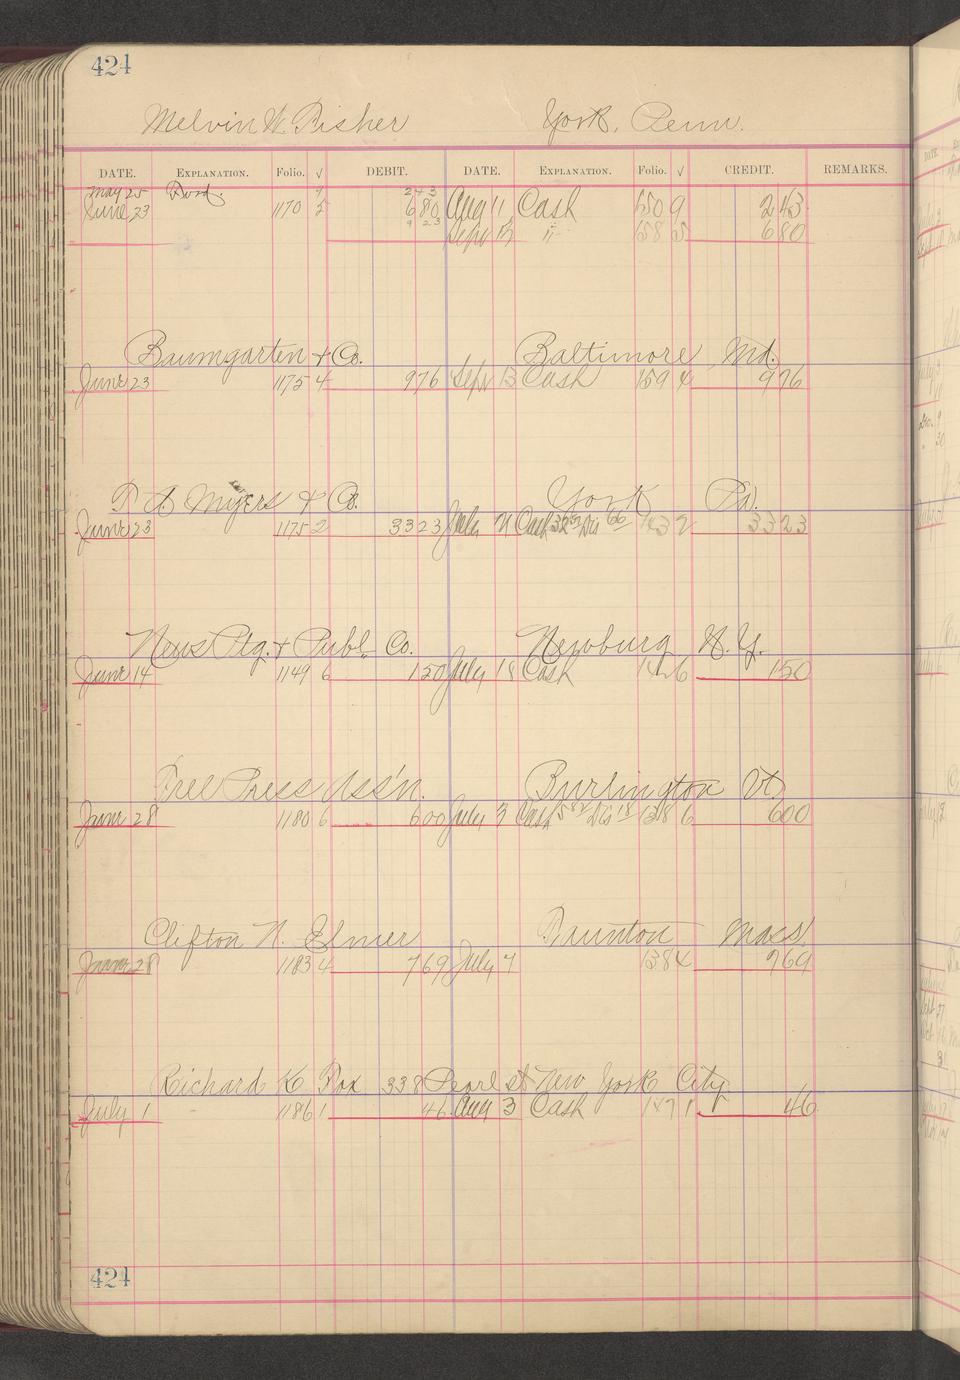 424
Melvin W. Fisher York, Penn.
DATE. EXPLANATION. Folio. √ DEBIT. DATE. EXPLANATION. Folio. √ CREDIT. REMARKS.
May 25 Fwd. 9 243
June 23 1170 5 680 Aug 11 Cash 150 9 243
9 23
Sept 13 " 158 5 680
Baumgarten & Co. Baltimore, Md.
June 23 1175 4 976 Sept 13 Cash 159 4 976
Myers & Co. York Pa.
June 23 1175 2 3323 July 21 Cash Dis 66 143 2 3323
News Ptg. & Publ. Co. Newburg N.Y.
June 14 1149 6 150 July 18 Cash 142 6 150
Free Press Ass'n. Burlington Vt
June 28 1180 6 600 July 3 Cash 582 Dis 18 138 6 600
Clifton N. Elmer Taunton Mass
June 28 1183 4 769 July 7 138 4 769
Richard K Fox 338 Pearl St New York City
July 1 1186 1 46 Aug 3 Cash 147 1 46
424